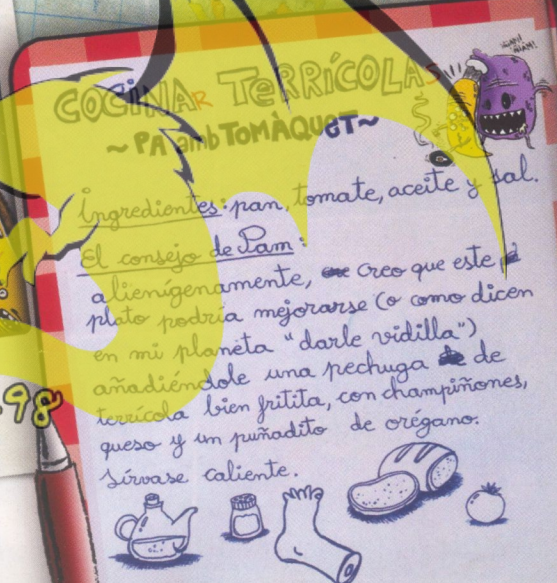 ÑAM!
ÑAM!
COCINAR TERRÍCOLAS
~ PA amb TOMÀQUET ~
Ingredientes: pan, tomate, aceite y sal.
El consejo de Pam:
alienígenamente, creo que este
plato podría mejorarse (o como dicen
en mi planeta "darle vidilla")
añadiéndole una pechuga de
terrícola bien fritita, con champiñones,
queso y un puñadito de orégano.
Sírvase caliente.
98